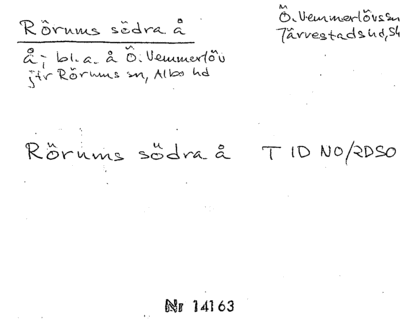 Rörums södra å
Ö. Vemmerlövs sn
Järrestads hd, Sk
å; bl.a. å Ö. Vemmerlöv
jfr Rörums sn, Albo hd
Rörums södra å T 1D NO/2DSO
Nr 14163